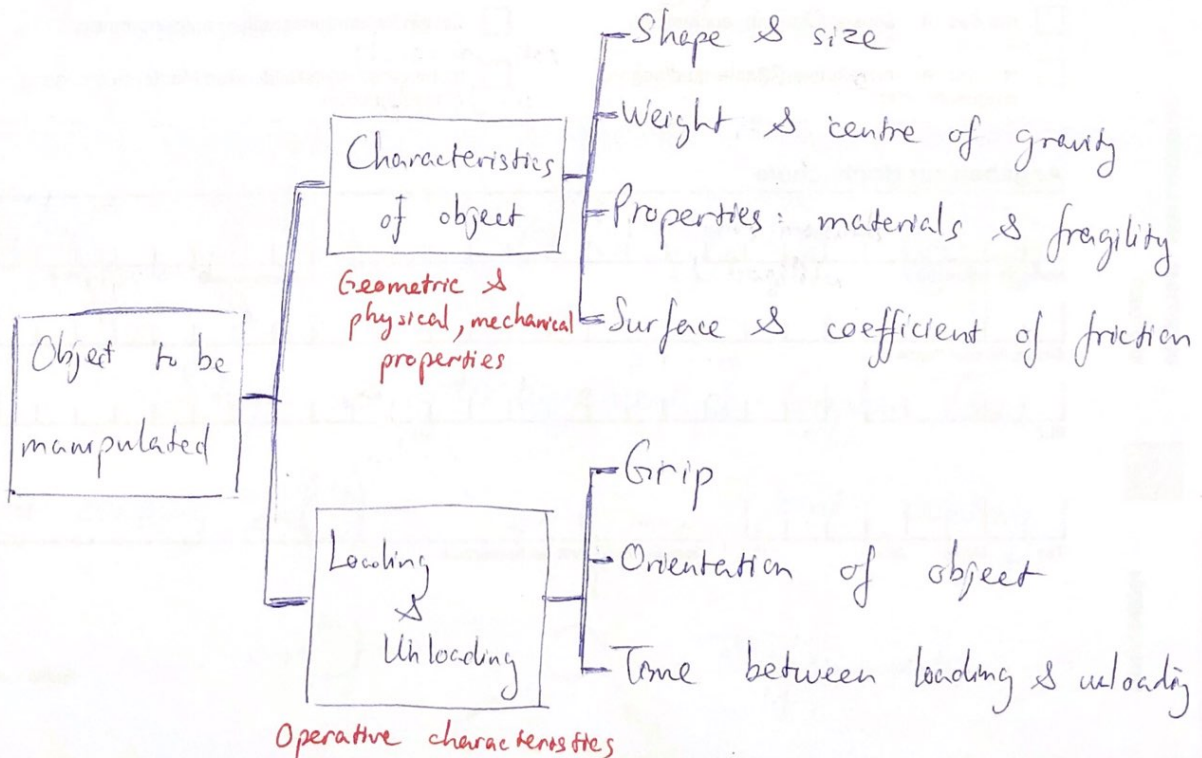 Object to be
manipulated
Characteristics
of object
Geometric &
physical, mechanical
properties
Shape & size
Weight & centre of gravity
Properties: materials & fragility
Surface & coefficient of friction
Loading
&
Unloading
Operative characteristics
Grip
Orientation of object
Time between loading & unloading